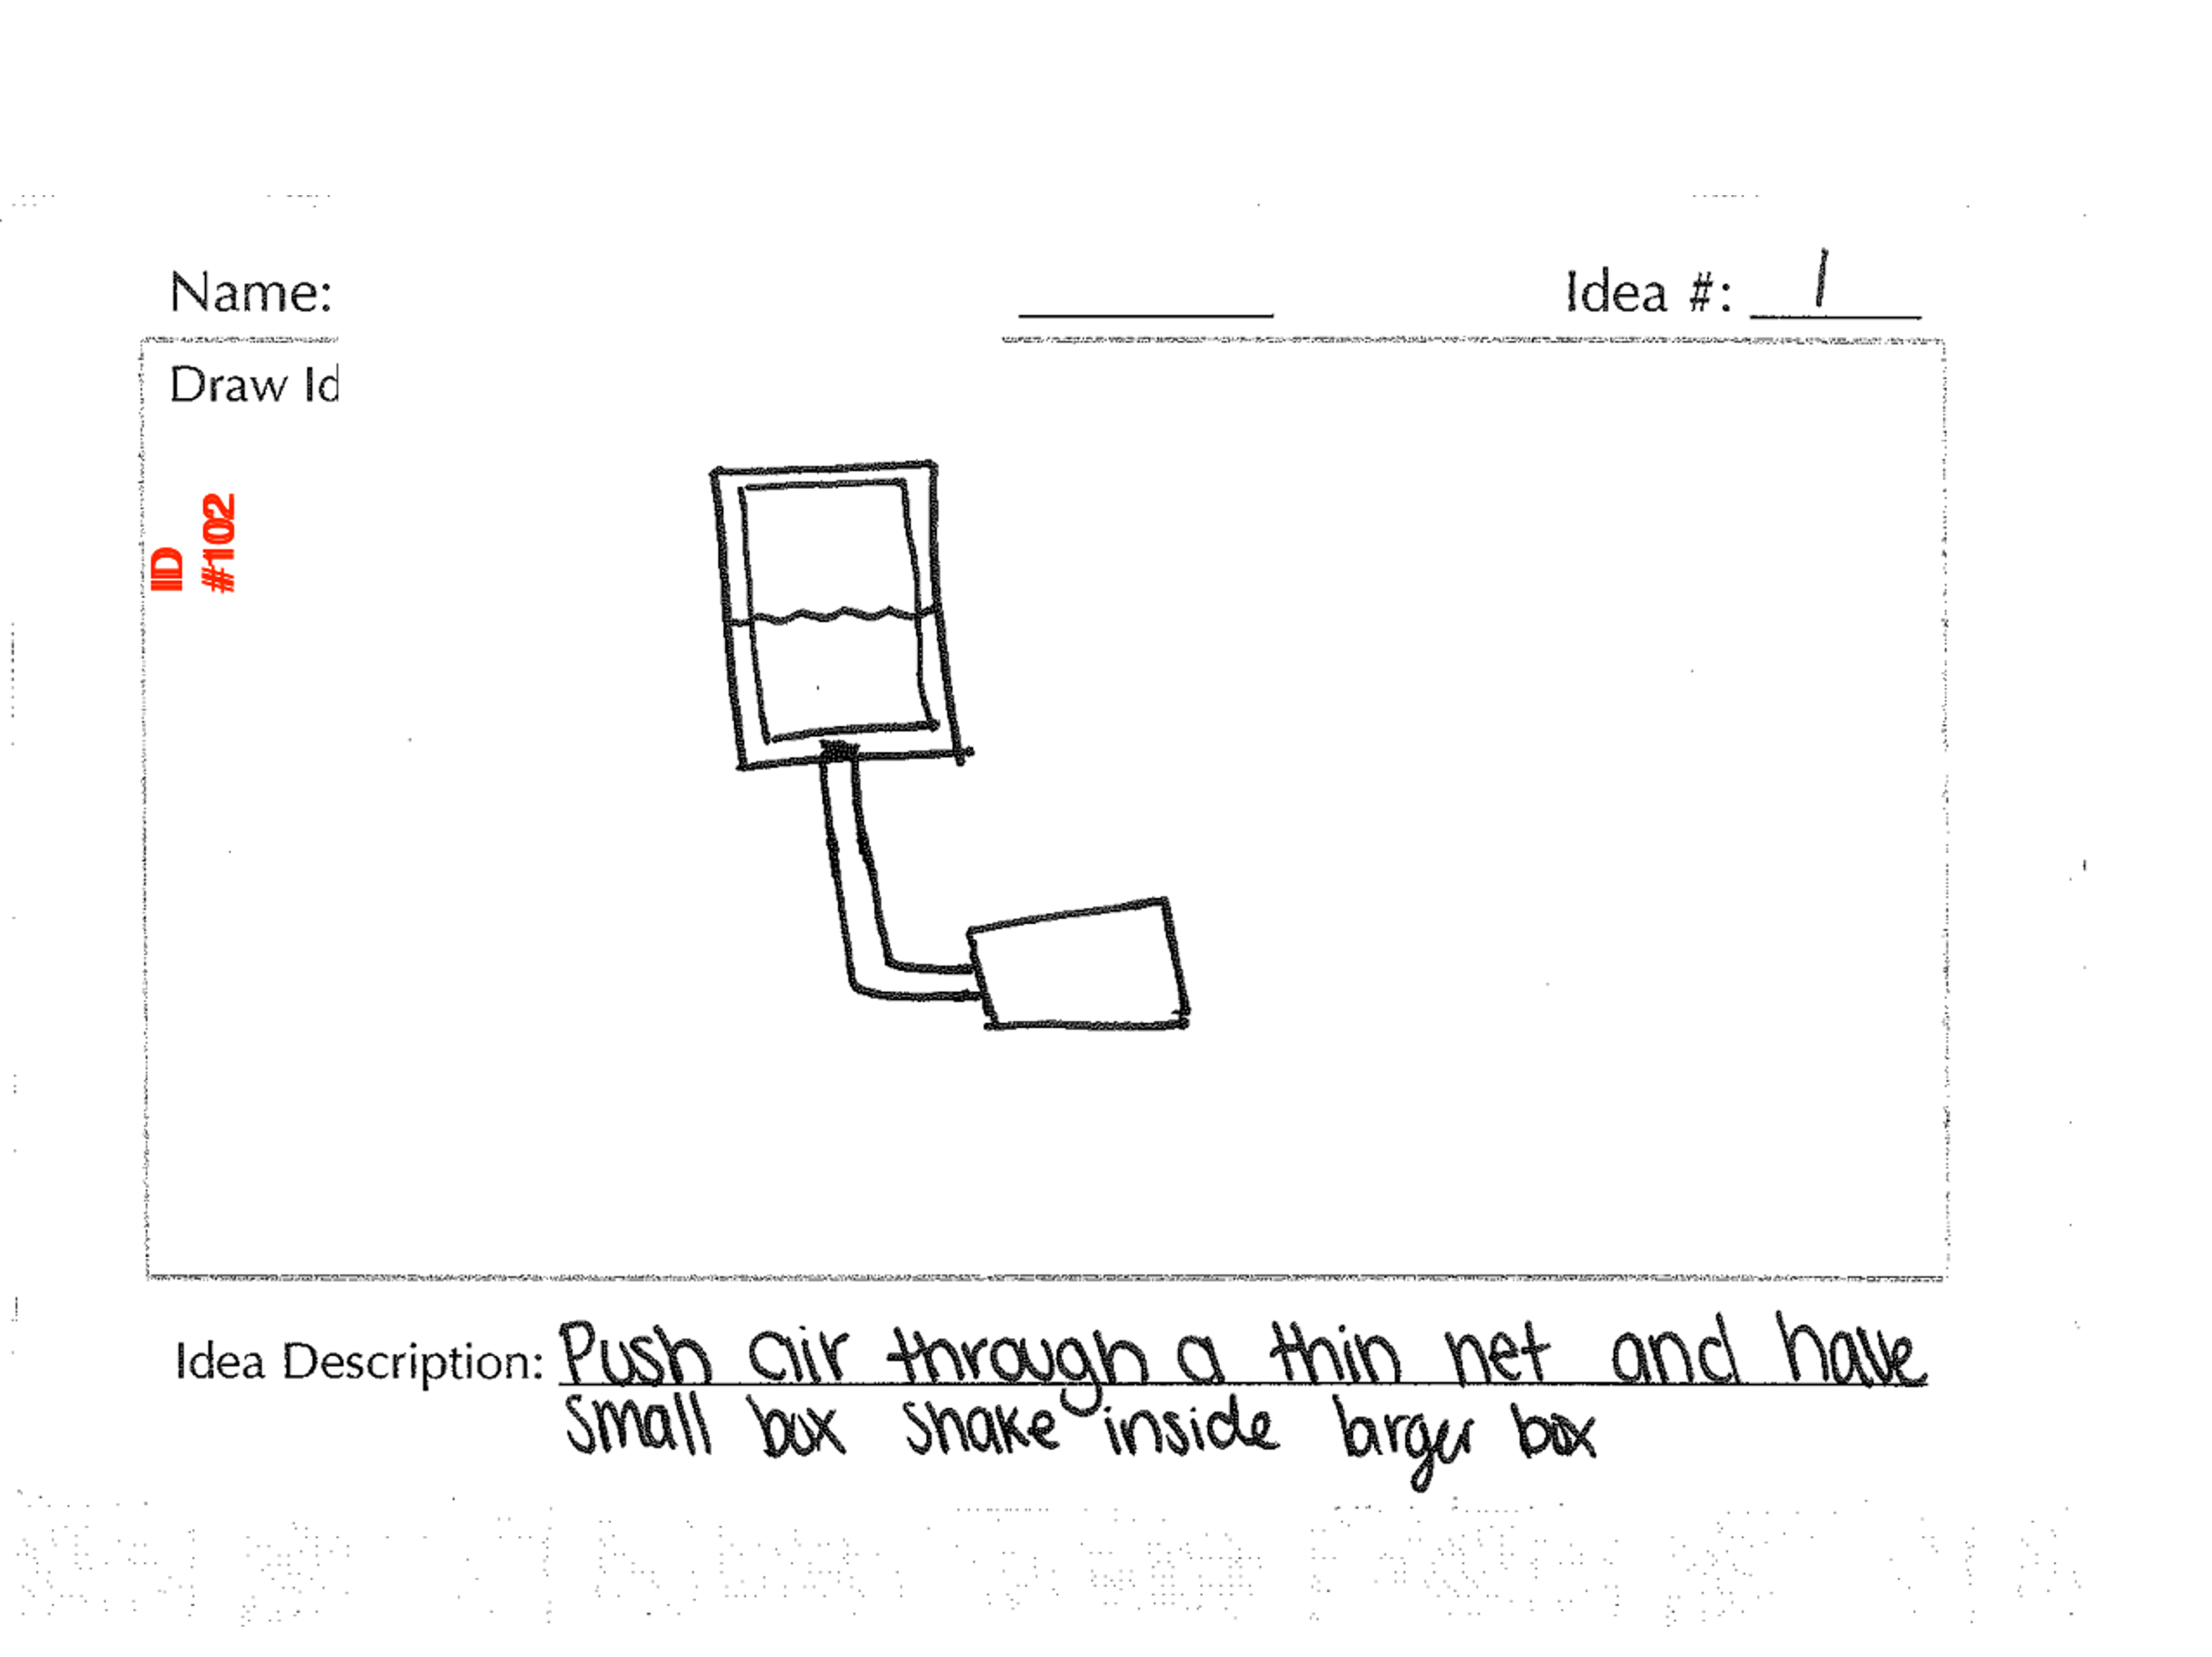 Name: Idea #: 1
Draw Id
ID
#102
Idea Description: Push air through a thin net and have
small box shake inside larger box